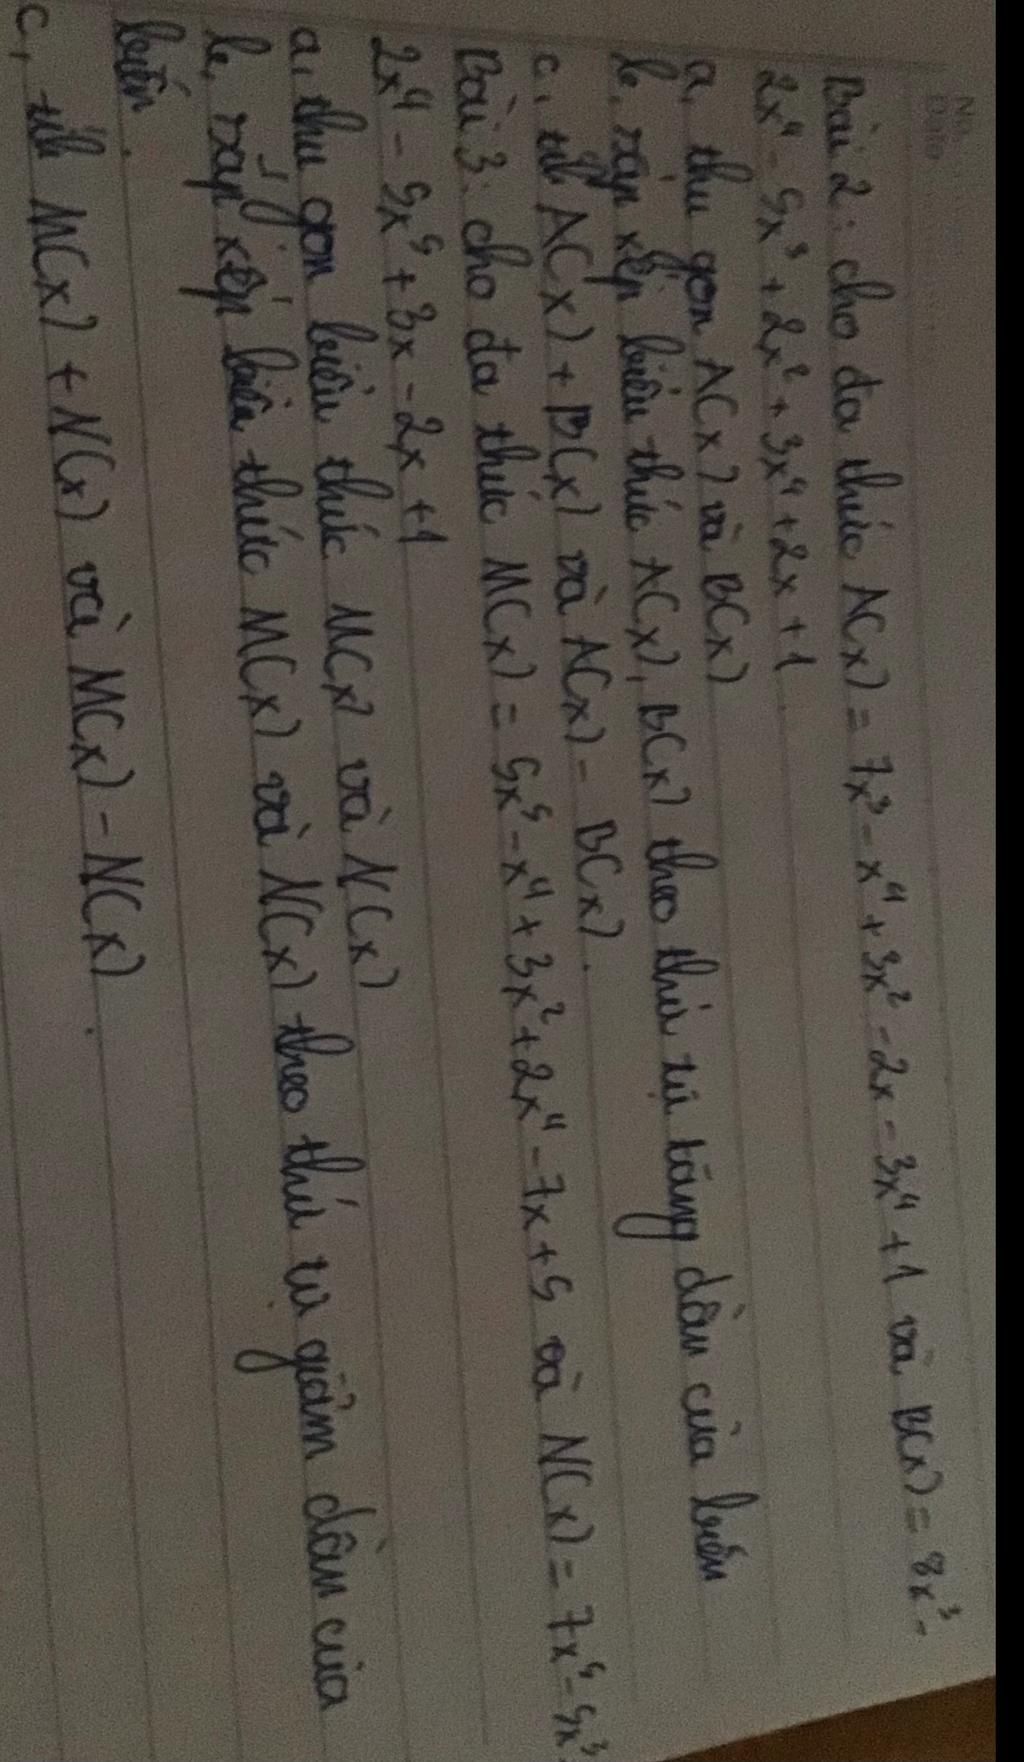 No.
Date
Bài 2: cho đa thức A(x) = 7x³ - x⁴ + 3x² - 2x - 3x⁴ + 1 và B(x) = 8x³ -
2x⁴ - 5x³ + 2x² + 3x⁴ + 2x + 1.
a, thu gọn A(x) và B(x)
b, sắp xếp biểu thức A(x), B(x) theo thứ tự tăng dần của biến
c, tính A(x) + B(x) và A(x) - B(x).
Bài 3: cho đa thức M(x) = 5x⁵ - x⁴ + 3x² + 2x⁴ - 7x + 5 và N(x) = 7x⁵ - 5x³
2x⁴ - 5x⁵ + 3x - 2x + 1
a, thu gọn biểu thức M(x) và N(x)
b, sắp xếp biểu thức M(x) và N(x) theo thứ tự giảm dần của
biến.
c, tính M(x) + N(x) và M(x) - N(x).